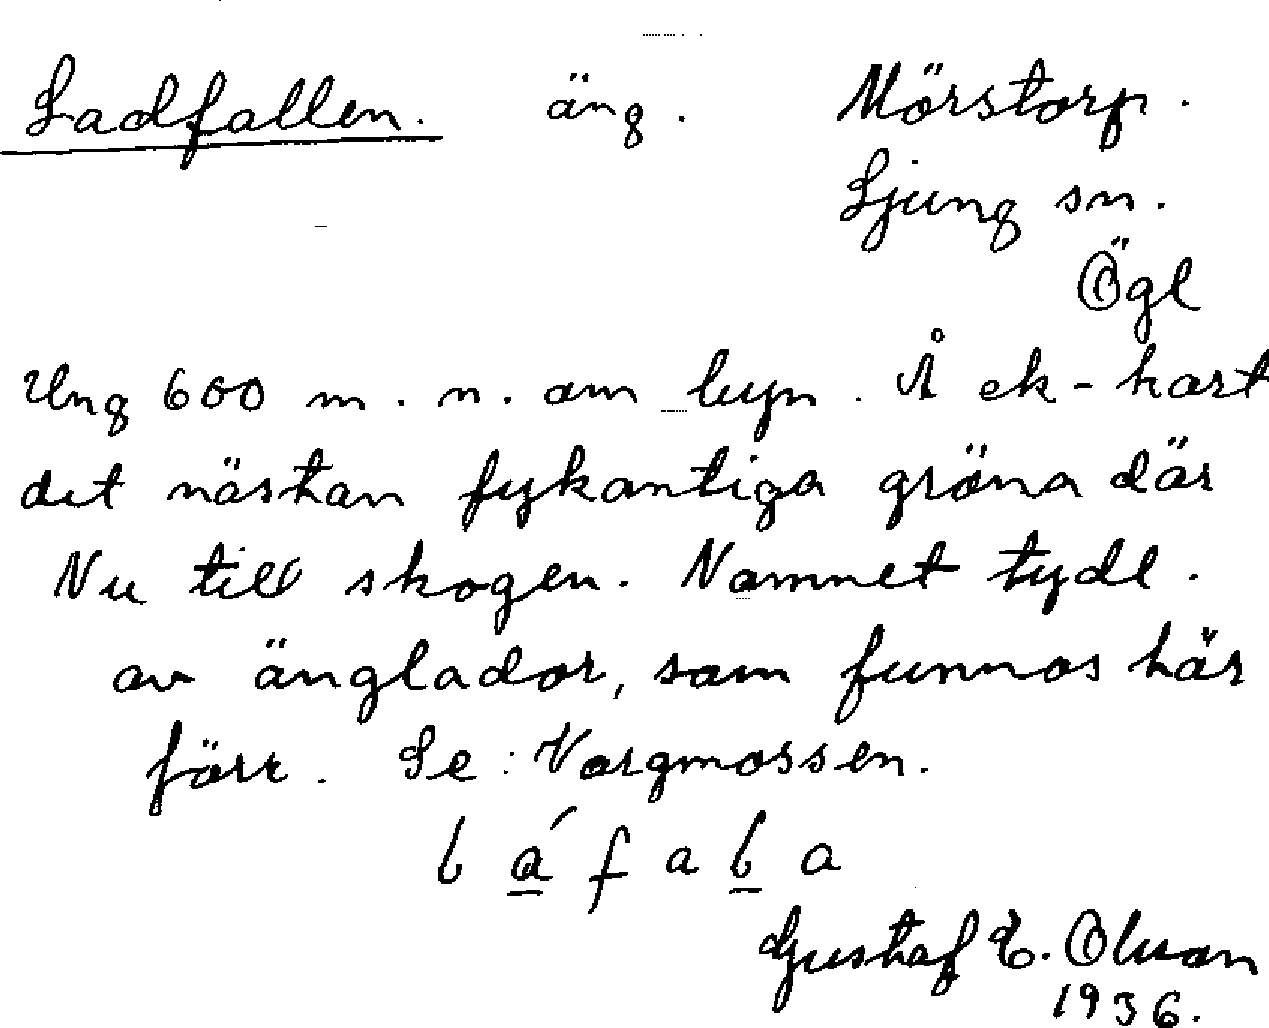 Ladfallen. äng. Mörstorp.
Ljung sn.
Ögl
Ung 600 m. n. om byn. Å ek-kart
det nästan fyrkantiga gröna där
Nu till skogen. Namnet tydl.
av änglador, som funnos här
förr. Se: Vargmossen.
l á f a l a
Gustaf E. Olsson
1936.